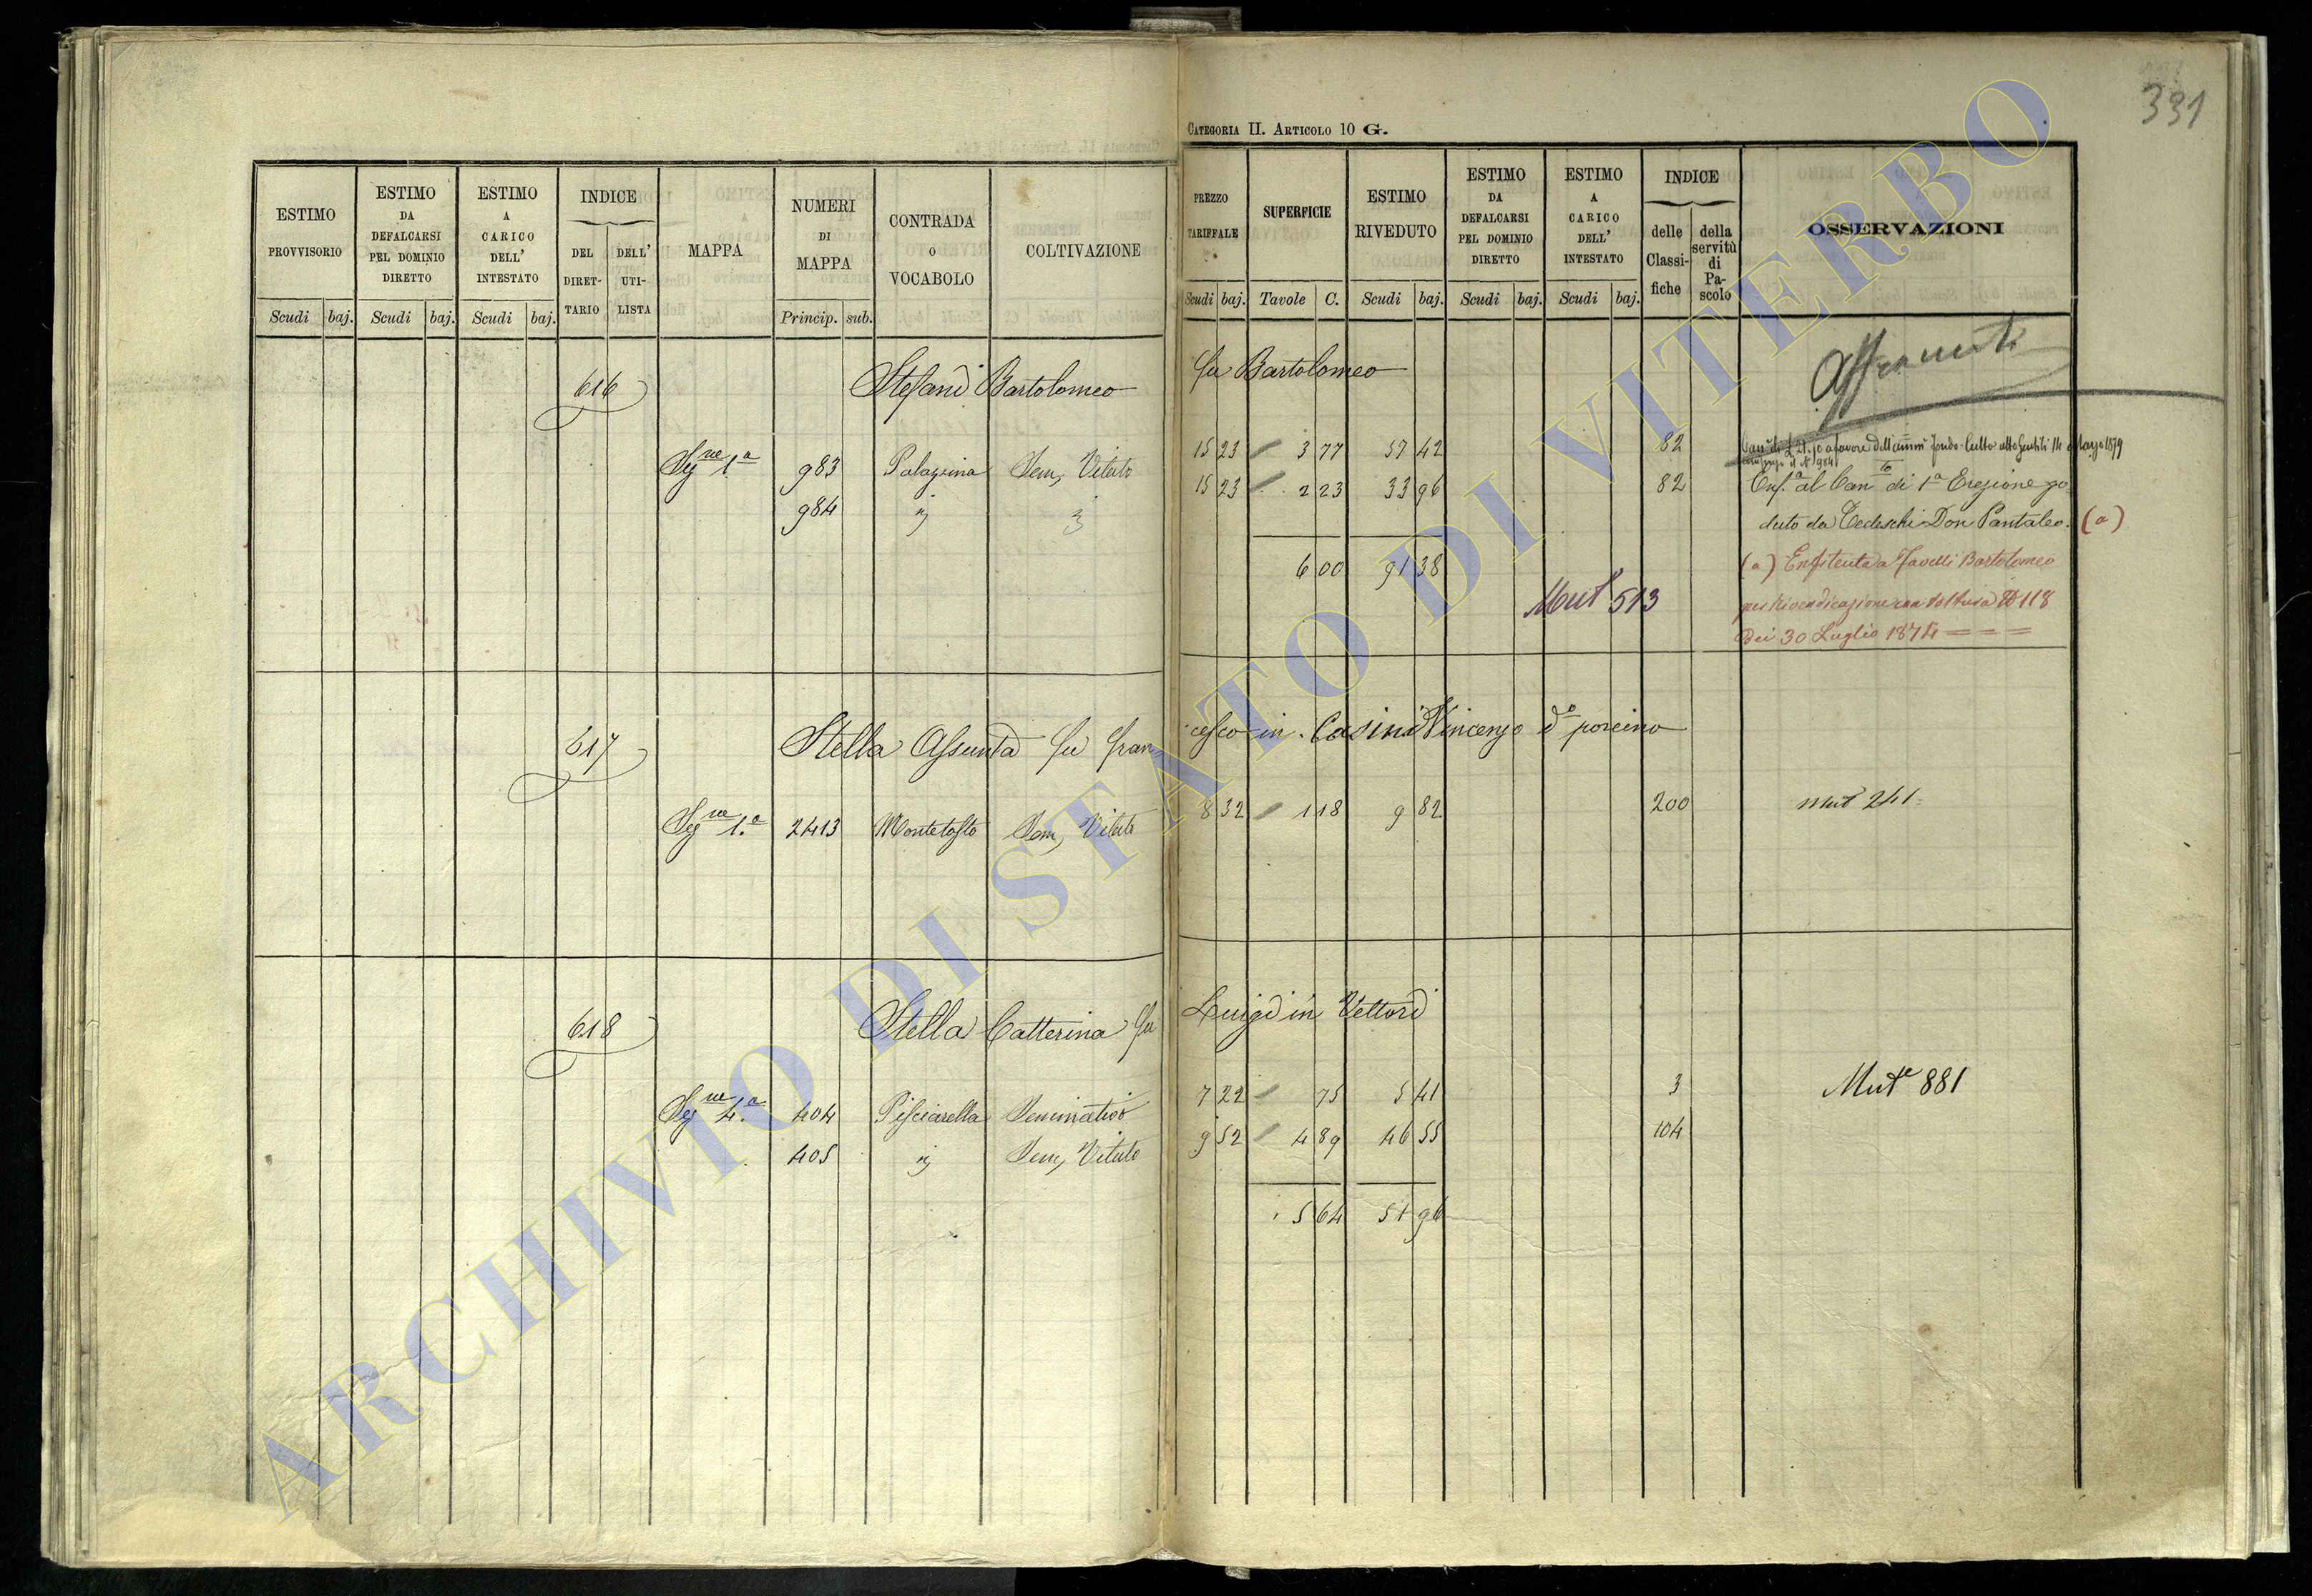 331
CATEGORIA II. ARTICOLO 10 G.
ESTIMO PROVVISORIO
ESTIMO DA DEFALCARSI PEL DOMINIO DIRETTO
ESTIMO A CARICO DELL' INTESTATO
INDICE
DEL DIRETTARIO
DELL' UTILISTA
MAPPA
NUMERI DI MAPPA
CONTRADA O VOCABOLO
COLTIVAZIONE
Scudi baj. Scudi baj. Scudi baj. Princip. sub.
PREZZO TARIFFALE
SUPERFICIE
ESTIMO RIVEDUTO
ESTIMO DA DEFALCARSI PEL DOMINIO DIRETTO
ESTIMO A CARICO DELL' INTESTATO
INDICE
delle Classifiche
della servitù di Pascolo
OSSERVAZIONI
Scudi baj. Tavole C. Scudi baj. Scudi baj. Scudi baj.
616 Stefani Bartolomeo fu Bartolomeo
Segne 1a 983 Palazzina Sem, Vitato 15 23 3 77 57 42 82
984 15 23 2 23 33 96 82
6 00 91 38
Mut 513
a favore dell' fondo Culto atto Gentili 14 Marzo 1879
Enf.a al Can.to di 1a Erezione go
duto da Tedeschi Don Pantaleo. (a)
(a) Enfiteuta a Favelli Bartolomeo
per Rivendicazione con voltura N 118
dei 30 Luglio 1874
617 Stella Assunta fu Fran
cesco in Casini Vincenzo do porcino
Segne 1.a 2413 Montetosto Sem, Vitato 8 32 1 18 9 82 200 Mut 241
618 Stella Catterina fu Luigi in Vettori
Segne 4.a 404 Pisciarella Seminativo 7 22 75 5 41 3 Mute 881
405 Sem, Vitato 9 52 4 89 46 55 104
5 64 51 96
ARCHIVIO DI STATO DI VITERBO